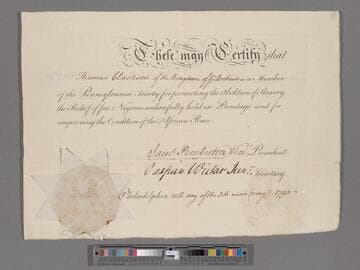 These may Certify that
Thomas Clarkson of the Kingdom of G. Britain is a Member
of the Pennsylvania Society for promoting the Abolition of Slavery,
the Relief of free Negroes unlawfully held in Bondage and for
improving the Condition of the African Race.
Jams Pemberton President
Caspar Wistar Junr. Secretary
Philadelphia 10th day of the 5th month (May) 1790